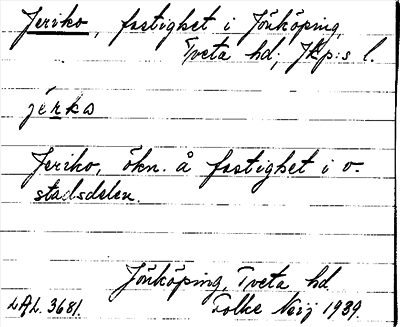 Jeriko, fastighet i Jönköping,
Tveta hd; Jkp:s l.
jerko
Jeriko, ökn. å fastighet i o-
stadsdelen.
Jönköping, Tveta hd
L.A.L. 3681. Folke Neij 1939.